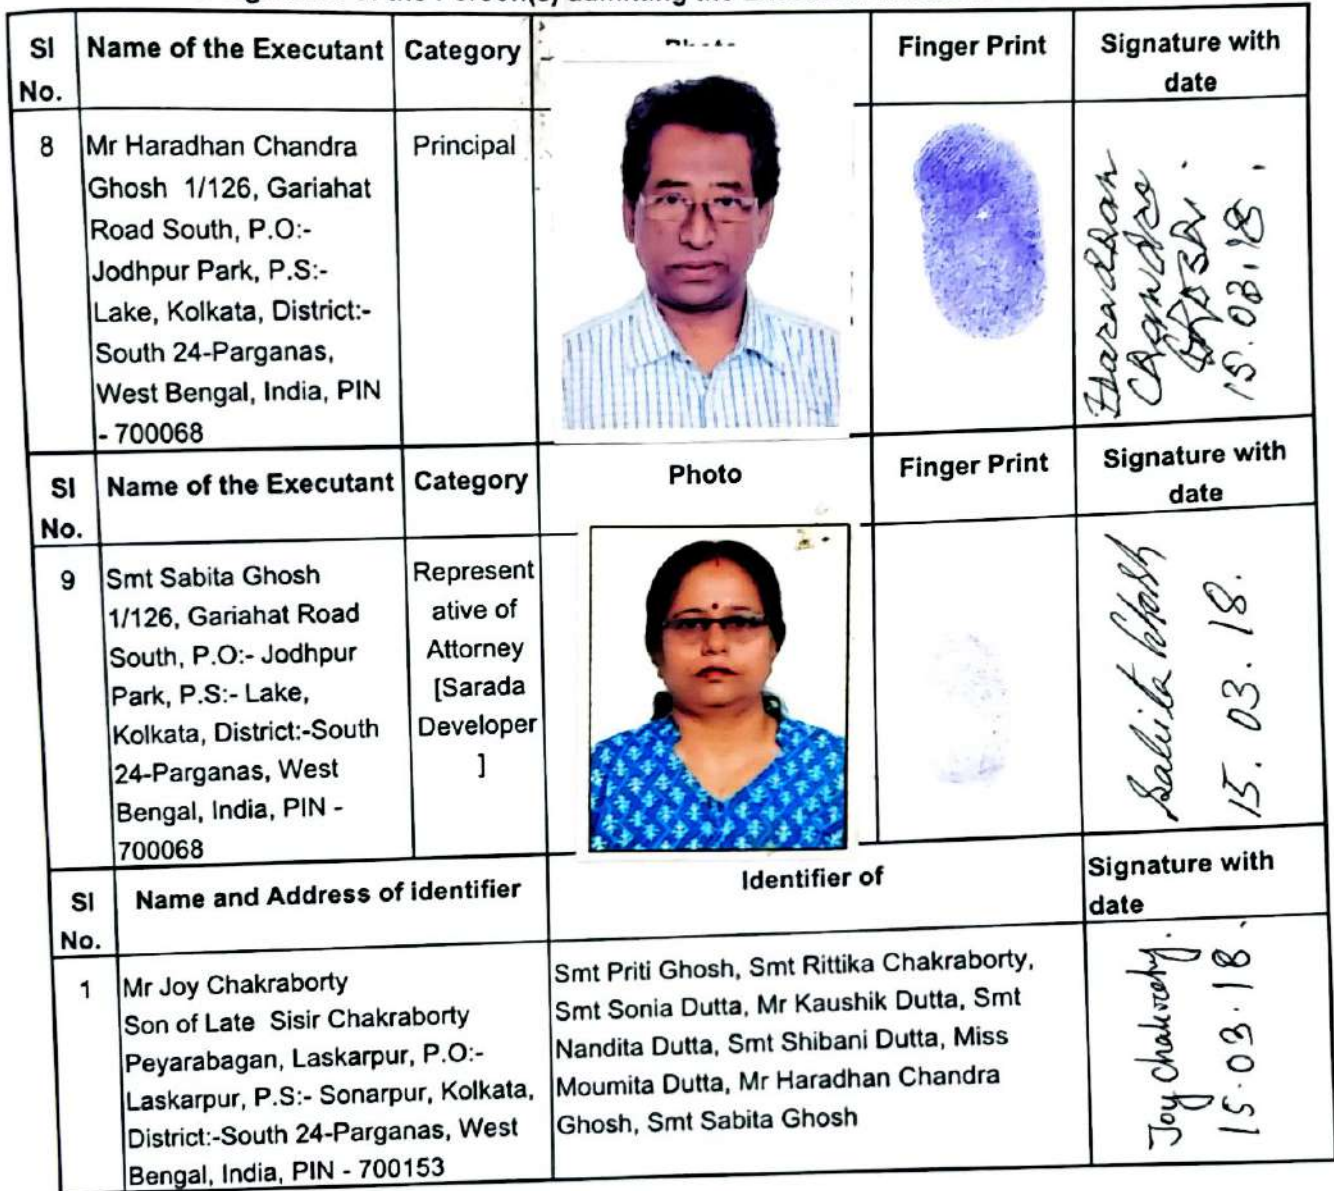 the Person(s) admitting the
Sl No. Name of the Executant Category Finger Print Signature with date
8 Mr Haradhan Chandra
Ghosh 1/126, Gariahat
Road South, P.O:-
Jodhpur Park, P.S:-
Lake, Kolkata, District:-
South 24-Parganas,
West Bengal, India, PIN
- 700068
Principal
Haradhan
Chandra
Ghosh.
15.03.18.
Sl No. Name of the Executant Category Photo Finger Print Signature with date
9 Smt Sabita Ghosh
1/126, Gariahat Road
South, P.O:- Jodhpur
Park, P.S:- Lake,
Kolkata, District:-South
24-Parganas, West
Bengal, India, PIN -
700068
Represent
ative of
Attorney
[Sarada
Developer
]
Sabita Ghosh
15.03.18.
Sl No. Name and Address of identifier Identifier of Signature with date
1 Mr Joy Chakraborty
Son of Late Sisir Chakraborty
Peyarabagan, Laskarpur, P.O:-
Laskarpur, P.S:- Sonarpur, Kolkata,
District:-South 24-Parganas, West
Bengal, India, PIN - 700153
Smt Priti Ghosh, Smt Rittika Chakraborty,
Smt Sonia Dutta, Mr Kaushik Dutta, Smt
Nandita Dutta, Smt Shibani Dutta, Miss
Moumita Dutta, Mr Haradhan Chandra
Ghosh, Smt Sabita Ghosh
Joy Chakraborty.
15.03.18.